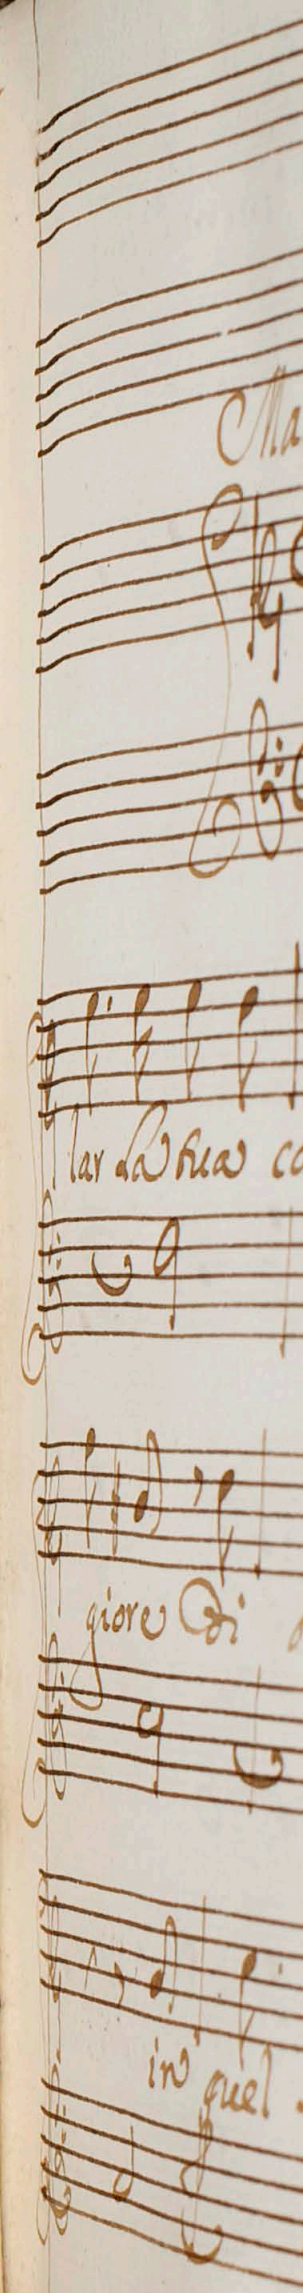 Ma
lar La tua co
giore Di
in quel